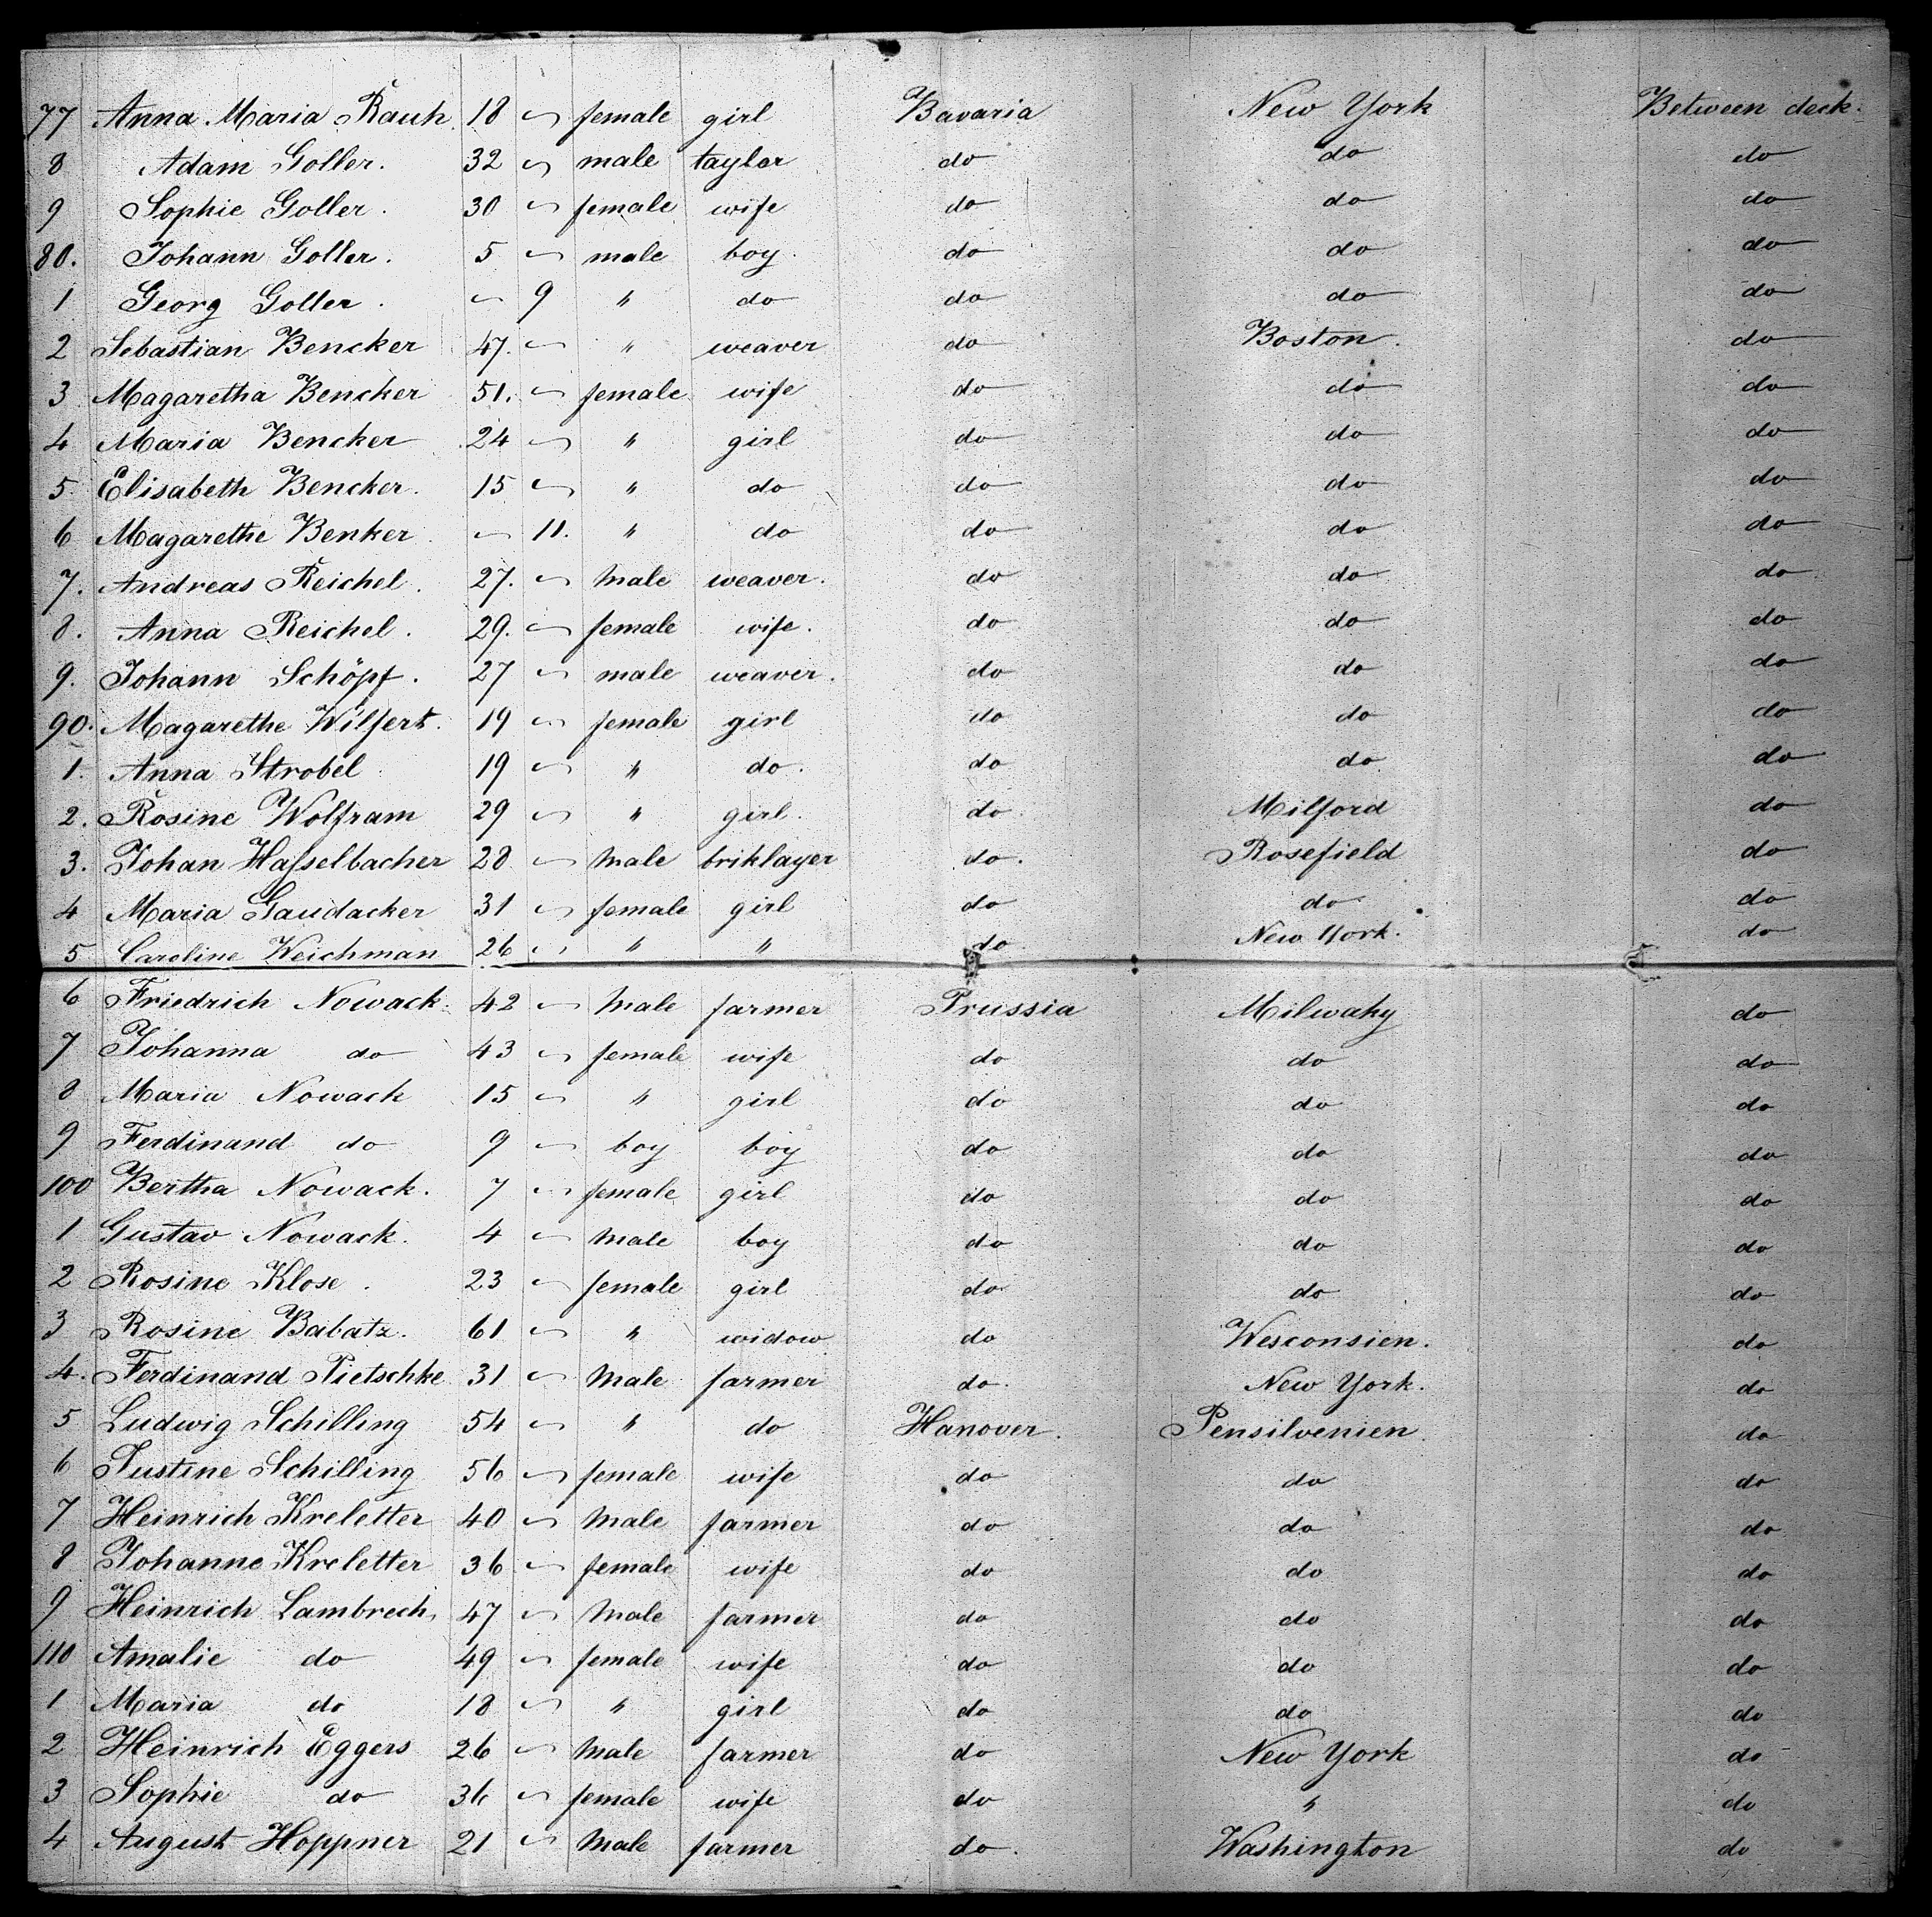 77 Anna Maria Rauh 18 ~ female girl Bavaria New York Between deck.
8 Adam Goller. 32 ~ male taylor do do do
9 Sophie Goller. 30 ~ female wife do do do
80. Johann Goller. 5 ~ male boy. do do do
1 Georg Goller. ~ 9 " do do do do
2 Sebastian Bencker 47. ~ " weaver do Boston. do
3 Magaretha Bencker 51. ~ female wife do do do
4 Maria Bencker 24 ~ " girl do do do
5. Elisabeth Bencker. 15 ~ " do do do do
6 Magarethe Benker. ~ 11. " do do do do
7. Andreas Reichel. 27. ~ male weaver. do do do
8. Anna Reichel. 29. ~ female wife. do do do
9. Johann Schöpf. 27 ~ male weaver. do do do
90. Magarethe Wilfert. 19 ~ female girl do do do
1. Anna Strobel 19 ~ " do. do do do
2. Rosine Wolfram 29 ~ " girl. do. Milford do
3. Johan Haſselbacher 28 ~ male briklayer do. Rosefield do
4 Maria Gaudacker 31 ~ female girl do do do
5 Caroline Weichman 26 ~ " " do New York. do
6 Friedrich Nowack. 42 ~ male farmer Prussia Milwaky do
7 Johanna do 43 ~ female wife do do do
8 Maria Nowack 15 ~ " girl do do do
9 Ferdinand do 9 ~ boy boy do do do
100 Bertha Nowack. 7 ~ female girl do do do
1 Gustav Nowack. 4 ~ male boy do do do
2 Rosine Klose. 23 ~ female girl do. do do
3 Rosine Babatz. 61 ~ " widow do Wesconsien. do
4. Ferdinand Pietschke 31 ~ male farmer do. New York. do
5 Ludwig Schilling 54 ~ " do Hanover. Pensilvenien do
6 Justine Schilling 56 ~ female wife do do do
7 Heinrich Kreletter 40 ~ male farmer do do do
8 Johanne Kreletter 36 ~ female wife do do do
9 Heinrich Lambrech, 47 ~ male farmer do do do
110 Amalie do 49 ~ female wife do do do
1 Maria do 18 ~ " girl do do do
2 Heinrich Eggers 26 ~ male farmer do New York do
3 Sophie do 36 ~ female wife do " do
4 August Hoppner 21 ~ male farmer do. Washington do